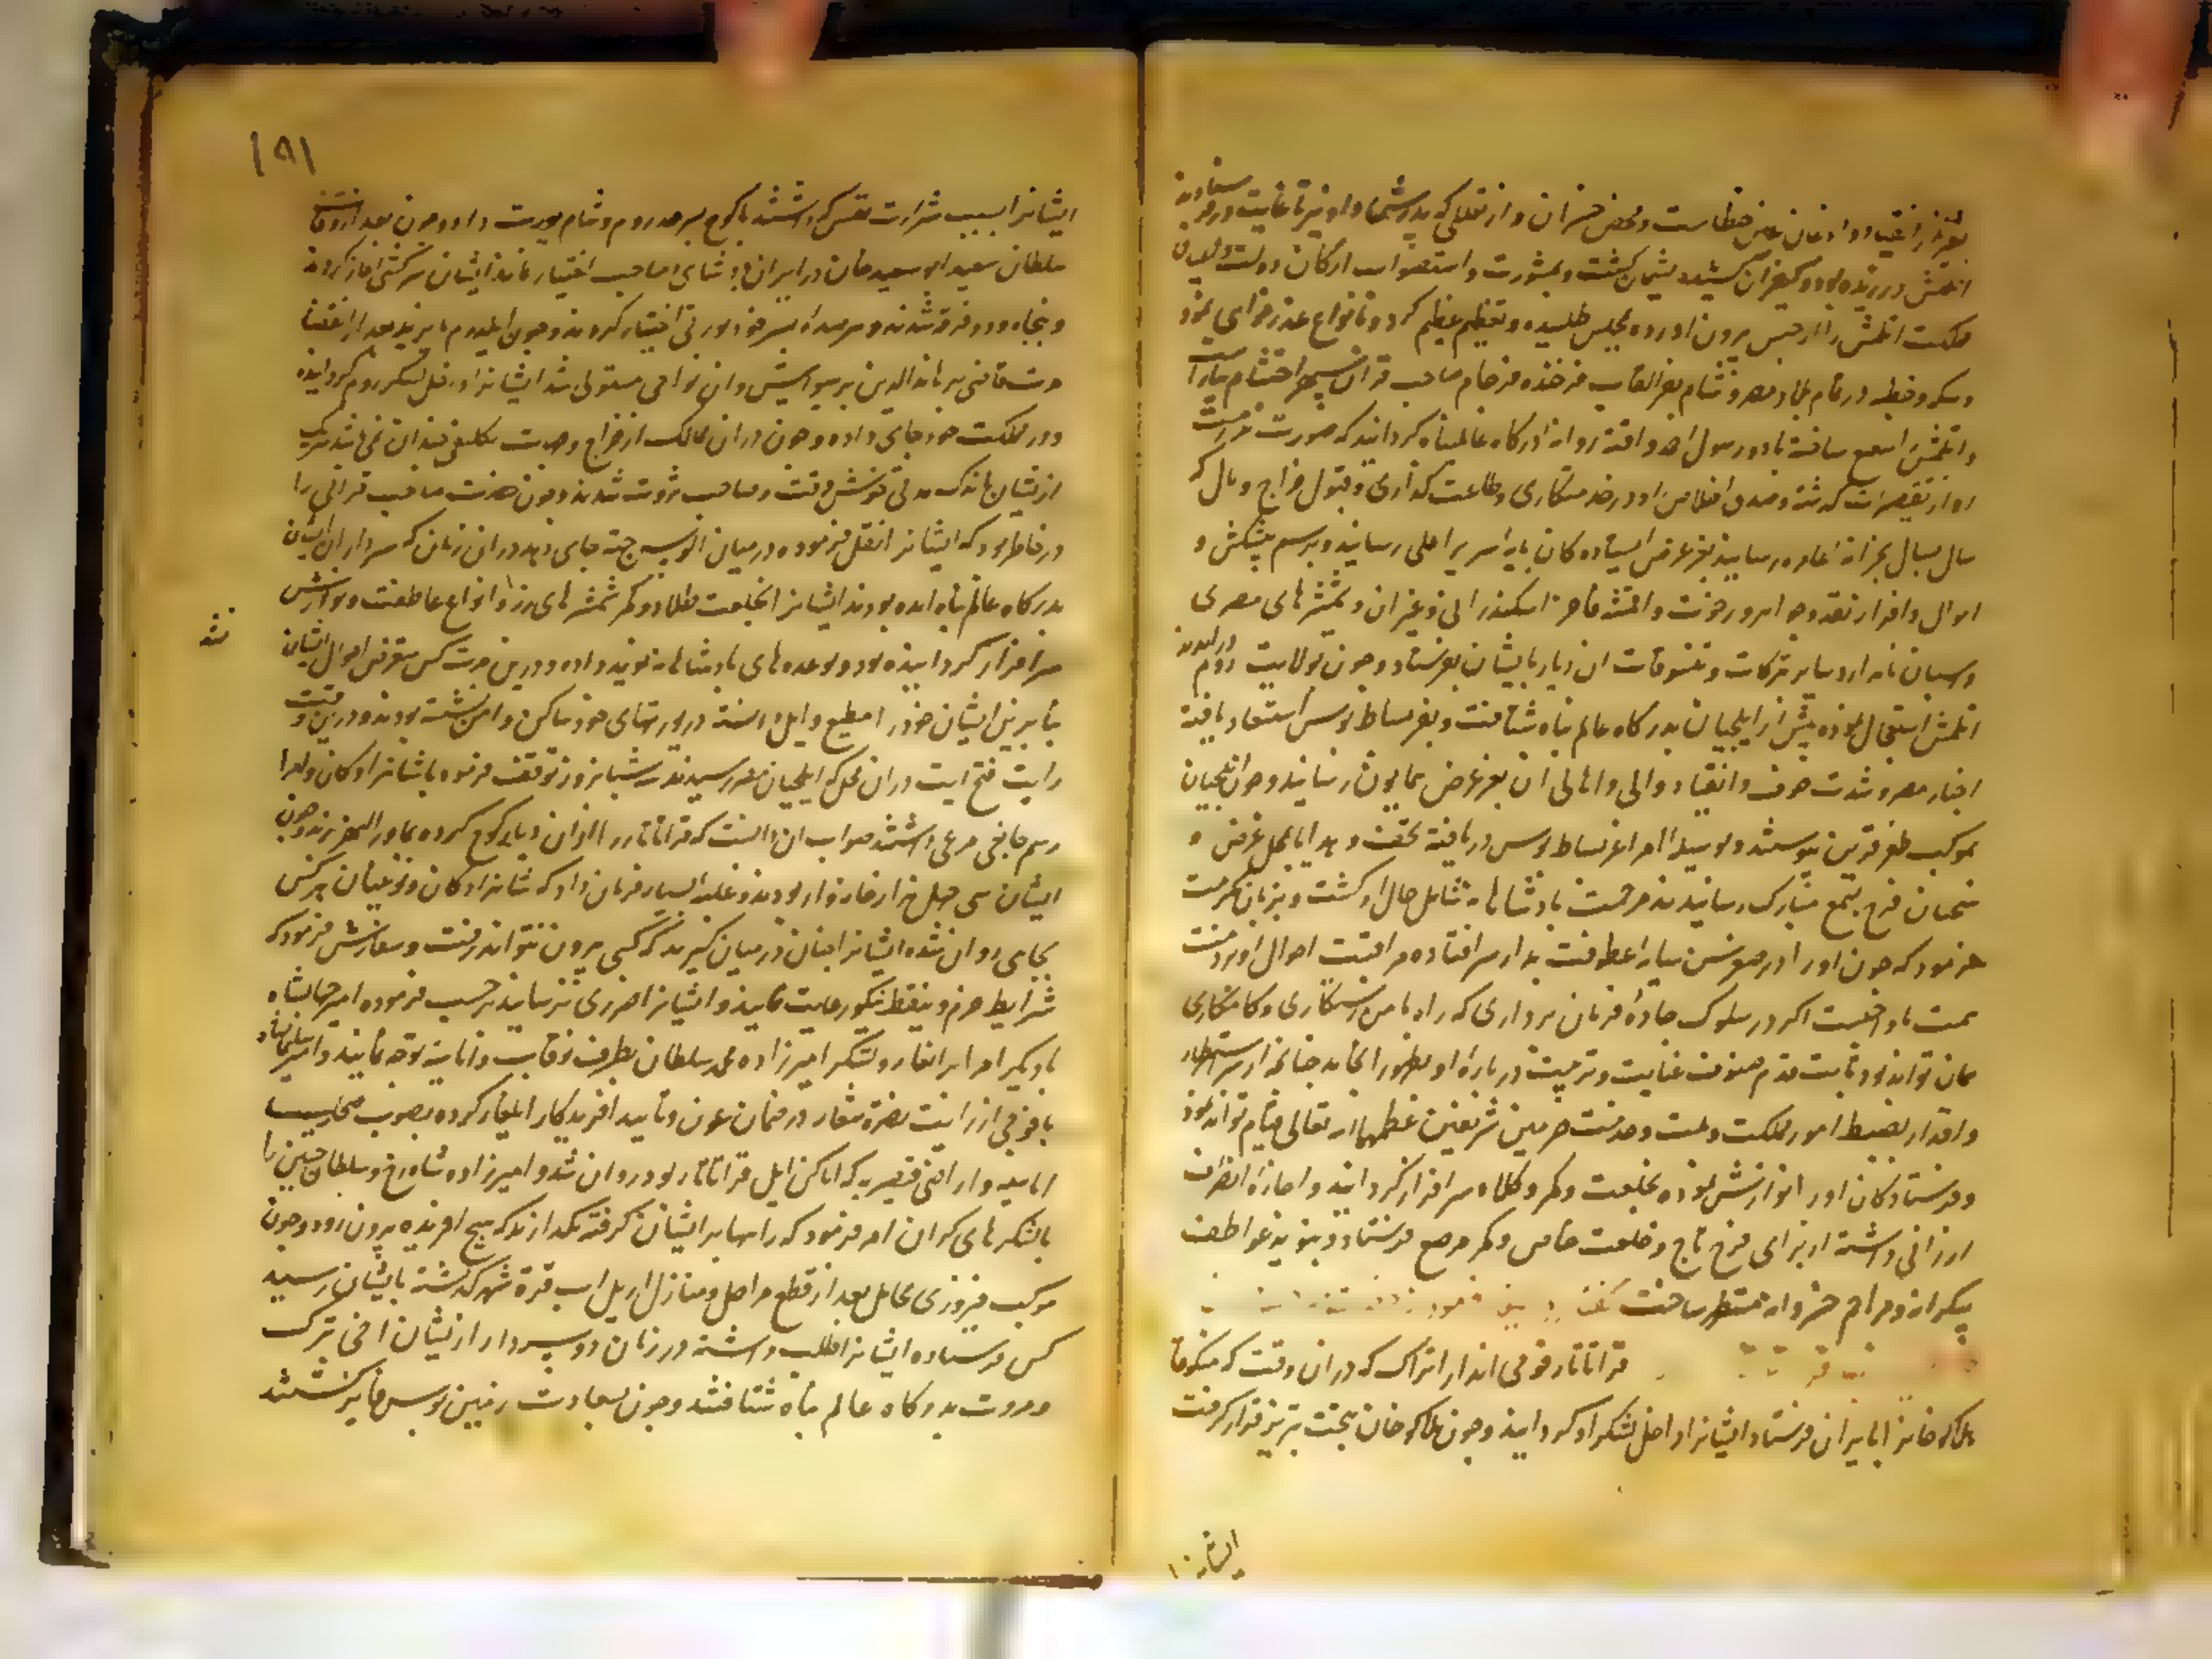 بغیر از انقیاد و اذعان عین خطاست و محض خسران و از تعللی که پدرش
اتلمش ورزیده بود و کیفر آن کشیده پشیمان گشت و بمشورت و استصواب ارکان دولت
مملکت اتلمش را از حبس بیرون آورده بمجلس طلبیده و تعظیم عظیم کرد و بانواع عذرخواهی نمود
و سکه و خطبه در تمام بلاد مصر و شام بفر القاب فرخنده فرجام صاحب قران سپهر احتشام بیاراست
و اتلمش را
او از تقصیرات گذشته و صدق اخلاص او در خدمتکاری و طاعت گذاری و قبول خراج و مال که
سال بسال بخزانه عامره رسانید بعز عرض ایستادگان پایه سریر اعلی رسانید و برسم پیشکش و
اموال وافر از نقد و جواهر و رخوت و اقمشه فاخره اسکندرانی و غیر آن و شمشیرهای مصری
و اسبان و سایر تبرکات و تنسوقات آن دیار بایشان بفرستاد و چون بولایت روم درآمدند
اتلمش استعجال نموده پیش از ایلچیان بدرگاه عالم پناه شتافت و بعز بساط بوس استسعاد یافته
اخبار مصر و شدت خوف و انقیاد والی و اهالی آن بعز عرض همایون رسانید و چون ایلچیان
بموکب ظفر قرین پیوستند و بوسیله امرا عز بساط بوس دریافته تحف و هدایا بمحل عرض
سخنان فرج بسمع مبارک رسانیدند مرحمت پادشاهانه شامل حال او گشت و بزبان مکرمت
فرمود که چون او را در صغر سن سایه عطوفت پدر از سر افتاده مراقبت احوال او بر ذمت
همت ما واجبست اگر در سلوک جاده فرمان برداری که راه مأمن رستگاری و کامکاری
و اقتدار بضبط امور مملکت و ملت و خدمت حرمین شریفین عظمهما الله تعالی قیام تواند نمود
و فرستادگان او را نوازش نموده بخلعت و کمر و کلاه سرافراز گردانید و اجازه انصراف
ارزانی داشته از برای فرج تاج و خلعت خاص و کمر مرصع فرستاد و بنوید عواطف
بیکرانه و مراحم خسروانه مستظهر ساخت
قراتاتار قومی اند از اتراک که در آن وقت که منکوقا
هلاکو خانرا بایران فرستاد ایشانرا داخل لشکر او گردانید و چون هلاکو خان بتخت تبریز قرار گرفت
ایشانرا
۱۹۱
ایشانرا بسبب شرارت نفس که داشتند با کوچ بسرحد روم و شام یورت داد و چون بعد از وفات
سلطان سعید ابو سعید خان در ایران پادشاهی صاحب اختیار نماند ایشان سرکشی آغاز کردند
و پنجاه و دو فرقه شدند و هر یک از سر خود یورتی اختیار کردند و چون ایلدرم بایزید بعد از انقضا
مدت قاضی برهان الدین بر سیواس و آن نواحی مستولی شد ایشانرا داخل لشکر روم گردانیده
و در مملکت خود جای داده و چون در آن ممالک از خراج و جهات تکلیفی چندان نمی باشد هر یک
از ایشان باندک مدتی قوش وقت و صاحب ثروت شدند و چون حضرت صاحب قرانی را
در خاطر بود که ایشانرا نقل فرموده در میان الوس جته جای دهد در آن زمان که سرداران ایشان
بدرگاه عالم پناه آمده بودند ایشانرا بخلعت طلادوز و کمر شمشیرهای زر و انواع عاطفت و نوازش
سرافراز گردانیده بود و بوعده های پادشاهانه نوید داده و درین مدت کس متعرض احوال ایشان
نشد
بنابرین ایشان خود را مطیع و ایل دانسته در یورتهای خود ساکن و ایمن نشسته بودند و درین وقت
رایت فتح آیت در آن محل که ایلچیان مصر رسیدند شبانروز توقف فرمود با شاهزادگان و امرا
رسم جانقی مرعی داشتند صواب آن دانست که قراتاتار را از آن دیار کوچ کرده بماوراءالنهر برند و چون
ایشان سی چهل هزار خانه وار بودند و غلبه بسیار فرمان داد که شاهزادگان و نوئینان هر کس
بجایی روان شده ایشانرا چنان در میان گیرند که کسی بیرون نتواند رفت و سفارش فرمود که
شرایط حزم و تیقظ نیکو رعایت نمایند و ایشانرا ضرری نرسانند بر حسب فرموده امیر جهانشاه
با دیگر امرا برانغار و لشکر امیرزاده محمد سلطان بطرف توقات و اماسیه توجه نمایند و امیر سلیمانشاه
با فوجی از رایت نصرت شعار در ضمان عون و تایید آفریدگار ایلغار کرده بصوب
اماسیه و اراضی قیصریه که اماکن ایل قراتاتار بود روان شد و امیرزاده شاهرخ و سلطان حسین را
با لشکرهای گران امر فرمود که راهها بر ایشان گرفته نگذارند که هیچ آفریده بیرون رود و چون
موکب فیروزی محامل بعد از قطع مراحل و منازل از پل آب قره شهر گذشته بایشان رسید
کس فرستاده ایشانرا طلب داشته در زمان دو سردار از ایشان اخی تبرک
و مروت بدرگاه عالم پناه شتافتند و چون بسعادت زمین بوس فایز گشتند